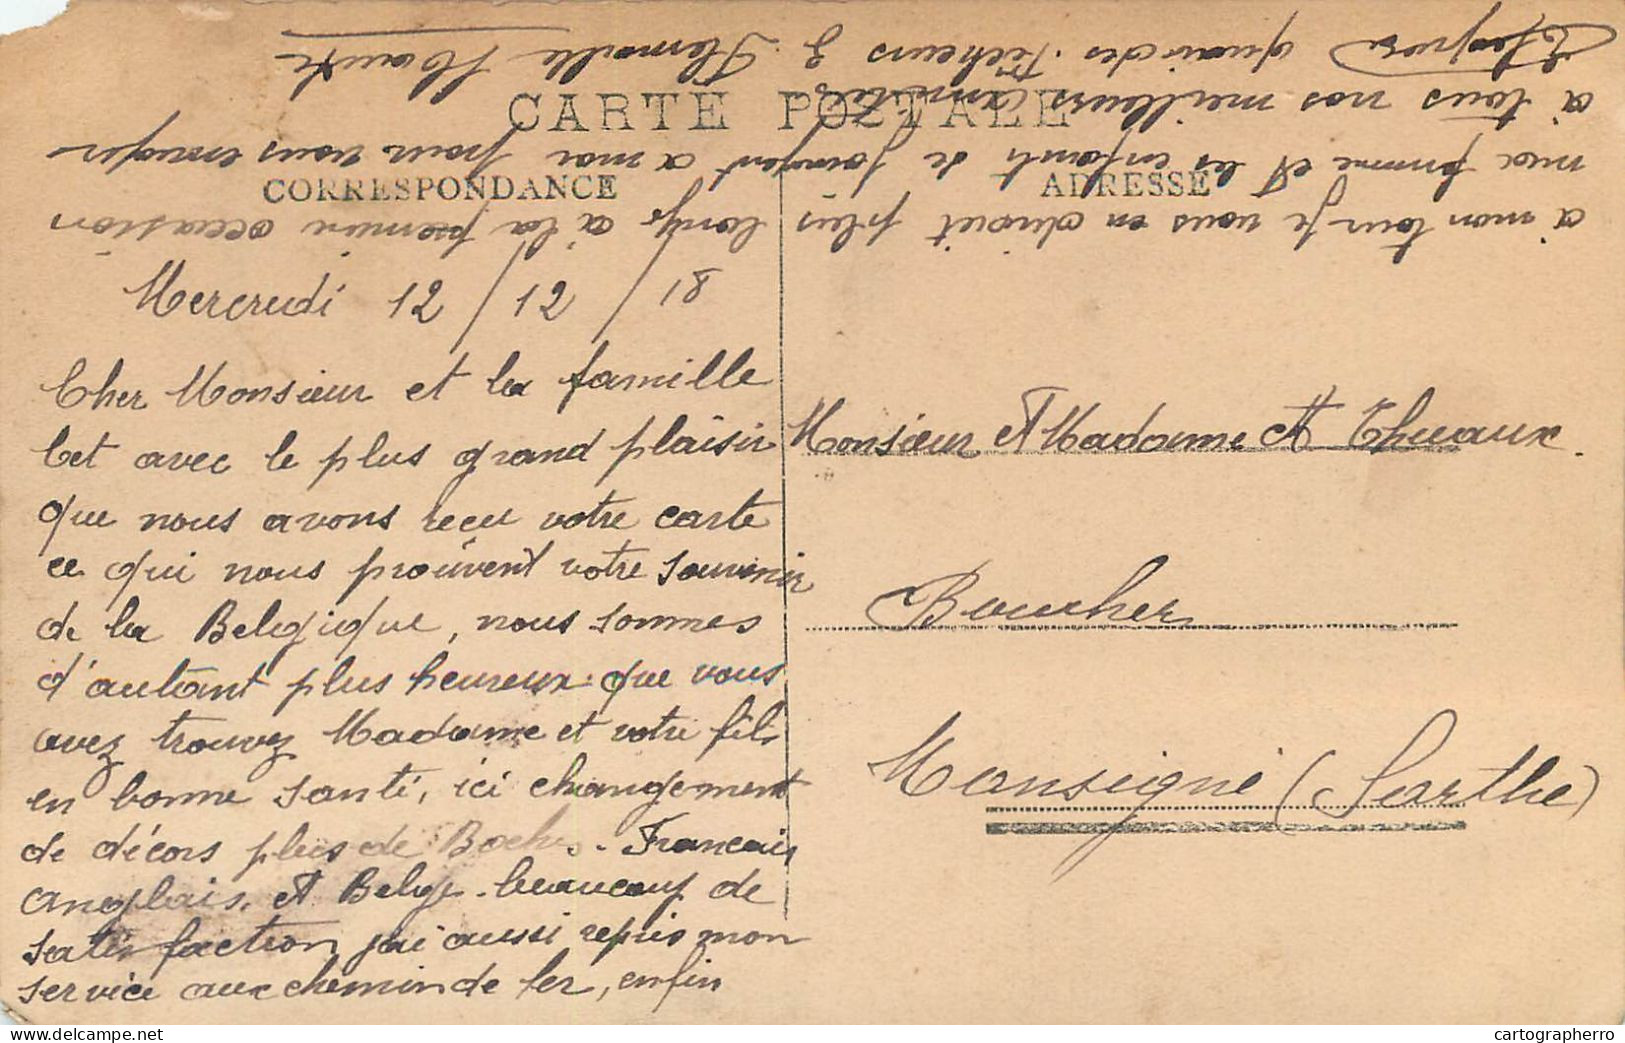 CARTE POSTALE
CORRESPONDANCE
ADRESSE
Mercredi 12/12/18
Cher Monsieur et la famille
Cet avec le plus grand plaisir
que nous avons reçu votre carte
ce qui nous prouvent votre souvenir
de la Belgique, nous sommes
d'autant plus heureux que vous
avez trouvez Madame et votre fils
en bonne santé, ici changement
de décors plus de Boches. Francais
anglais. et Belge beaucoup de
satisfaction j'ai aussi repris mon
service aux chemin de fer, enfin
a mon tour je vous en dirait plus long a la premier occasion
ma femme et les enfants de joingent a moi pour vous envoyer
a tous nos meilleurs amitiés
quai des Pêcheurs 3 Flemalle Haute
Monsieur et Madame A Thuaux.
Boucher
Mansigné (Sarthe)
delcampe.net
cartographerro